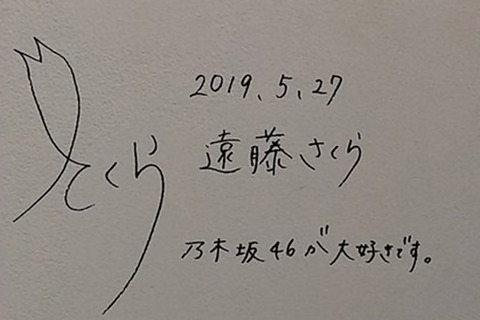 さくら
2019.5.27
遠藤さくら
乃木坂46が大好きです。